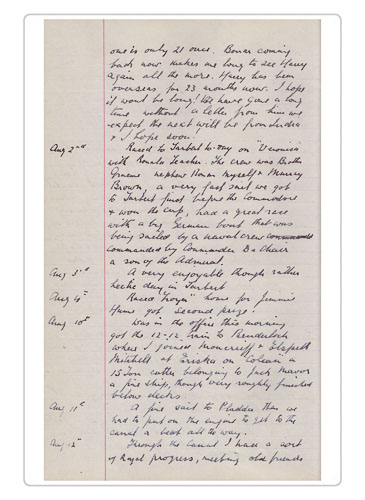 one is only 21 once. Bonar coming
back now makes me long to see Harry
again all the more. Harry has been
overseas for 23 months now. I hope
it wont be long! We have gone a long
time without a letter from him we
expect the next will be from India
& I hope soon!
Aug 2nd Raced to Tarbert to-day on "Veronica"
with Ronald Teacher. The crew was Brother
Graeme nephew Bonar myself & Murray
Brown, a very fast sail we got
to Tarbert first before the Commodore
& won the cup, had a great race
with a big German boat that was
being sailed by a naval crew
commanded by Commander De Chair
a son of the Admiral.
Aug 3rd A very enjoyable though rather
hectic day in Tarbert
Aug 4th Raced home for Jimmie
Hume got second prize.
Aug 10th Was in the office this morning
got the 12-12 train to Benderloch
where I joined Moncrieff & Elspeth
Mitchell at Eriska on "Colean" a
15 Ton cutter belonging to Jack Mavor
a fine ship, though very roughly finished
below decks
Aug 11th A fine sail to Fladda then we
had to put on the engine to get to the
canal a beat all the way.
Aug 12th Through the Canal I had a sort
of Royal progress, meeting old friends